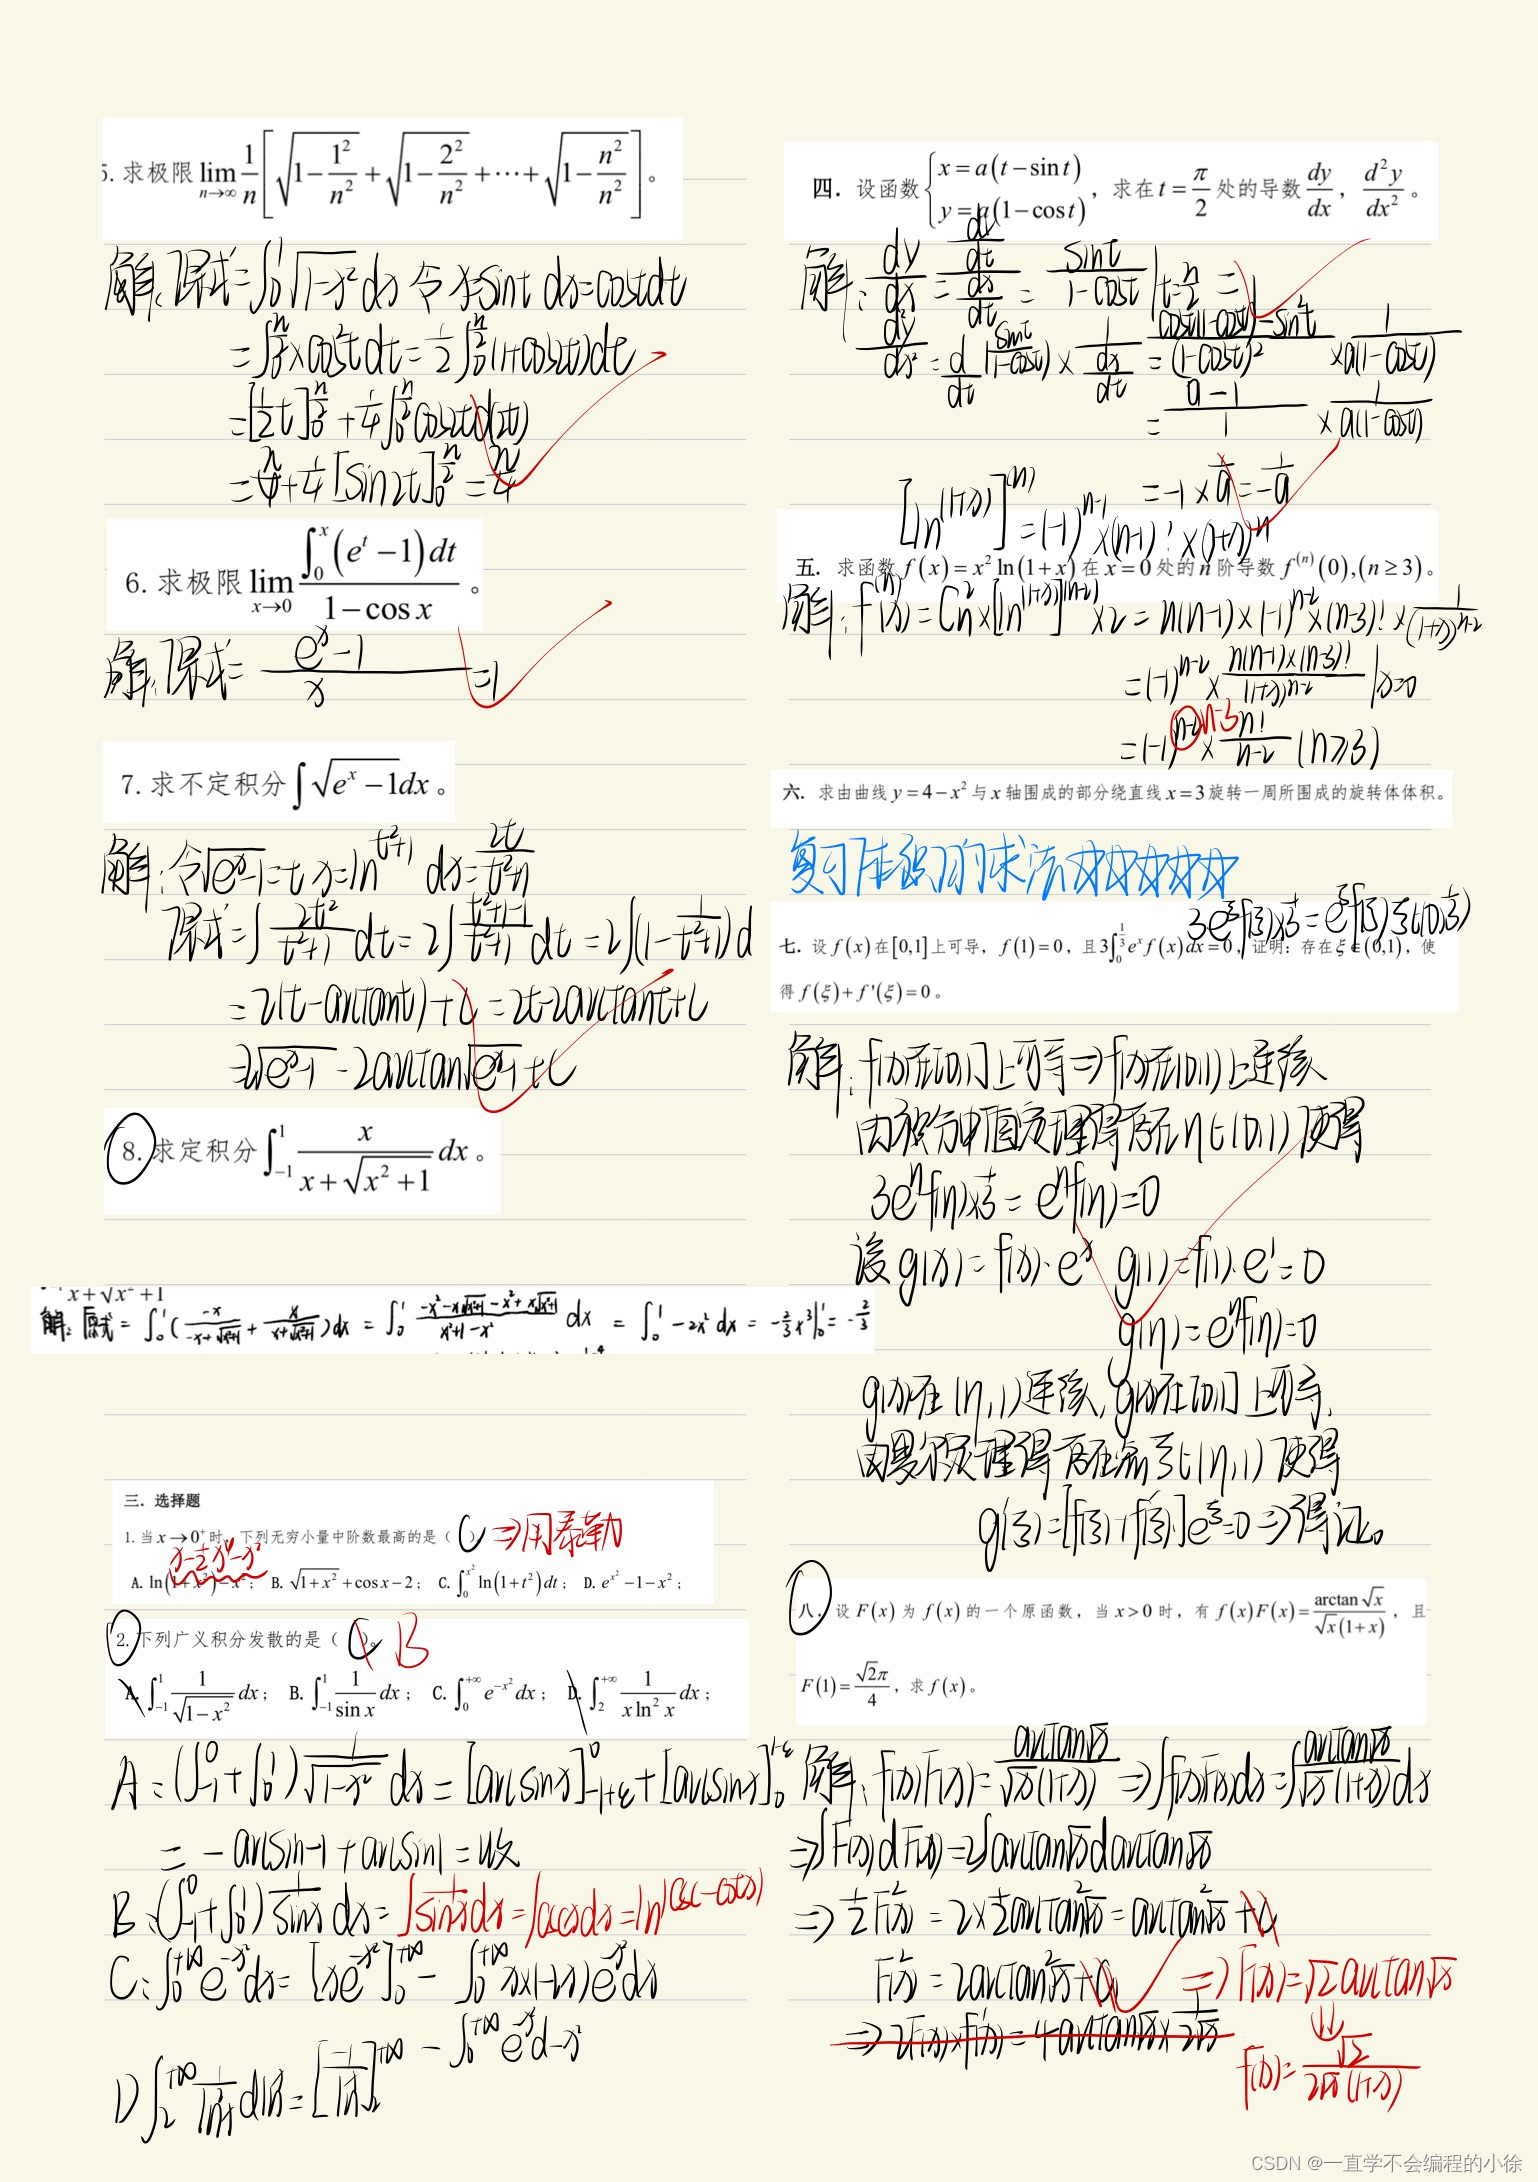 5. 求极限 lim_{n→∞} 1/n [√(1−1²/n²) + √(1−2²/n²) + ⋯ + √(1−n²/n²)] 。
解: 原式 = ∫₀¹ √(1-x²) dx 令 x=sint dx=costdt
= ∫₀^{π/2} cos²t dt = 1/2 ∫₀^{π/2} (1+cos2t)dt
= [1/2 t]₀^{π/2} + 1/4 ∫₀^{π/2} cos2t d(2t)
= π/4 + 1/4 [sin2t]₀^{π/2} = π/4
6. 求极限 lim_{x→0} ∫₀ˣ (eᵗ −1)dt / (1−cos x) 。
解: 原式 = (eˣ-1)/x = 1
7. 求不定积分 ∫ √(eˣ −1)dx 。
解: 令√(eˣ-1)=t x=ln^{t²+1} dx= 2t/(t²+1)
原式 = ∫ 2t²/(t²+1) dt = 2∫ (t²+1-1)/(t²+1) dt = 2∫(1-1/(t²+1))d
= 2(t-arctant)+C = 2t-2arctant+C
= 2√(eˣ-1) - 2arctan√(eˣ-1) +C
8. 求定积分 ∫₋₁¹ x/(x+√(x²+1)) dx 。
x+√(x²+1)
解: 原式 = ∫₀¹ (-x/(-x+√(x²+1)) + x/(x+√(x²+1)))dx = ∫₀¹ (-x²-x√(x²+1)-x²+x√(x²+1))/(x²+1-x²) dx = ∫₀¹ -2x² dx = -2/3 x³|₀¹ = -2/3
三. 选择题
1. 当 x→0⁺ 时, 下列无穷小量中阶数最高的是 ( C ) ⇒用泰勒
B. √(1+x²)+cos x−2 ; C. ∫₀^{x²} ln(1+t²)dt ; D. e^{x²}−1−x² ;
2. 下列广义积分发散的是 ( C )。 B
A. ∫₋₁¹ 1/√(1−x²) dx ; B. ∫₋₁¹ 1/sin x dx ; C. ∫₀^{+∞} e^{−x²}dx ; D. ∫₂^{+∞} 1/(x ln² x) dx ;
A: (∫₋₁⁰+∫₀¹) 1/√(1-x²) dx = [arcsinx]⁰₋₁₊ε + [arcsinx]₀^{1-ε}
= -arcsin-1 + arcsin1 = 收
B: (∫₋₁⁰+∫₀¹) 1/sinx dx = ∫ 1/sinx dx = ∫cscxdx = ln^{(cscx-cotx)}
C: ∫₀^{+∞} e^{-x²}dx = [xe^{-x²}]₀^{+∞} - ∫₀^{+∞} x×(-2x)e^{-x²}dx
- ∫₀^{+∞} e^{-x²}d-x²
四. 设函数 { x=a(t−sint) y=a(1−cost) , 求在 t=π/2 处的导数 dy/dx , d²y/dx² 。
解: dy/dx = (dy/dt)/(dx/dt) = sint/(1-cost) |t=π/2 = 1
d²y/dx² = d/dt (sint/(1-cost)) × 1/(dx/dt) = (cost(1-cost)-sin²t)/(1-cost)² × 1/(a(1-cost))
= (0-1)/1 × 1/(a(1-cost))
= -1 × 1/a = -1/a
[ln^{(1+x)}]^{(n)} = (-1)^{n-1} ×(n-1)! ×(1+x)^n
五. 求函数 f(x)=x² ln(1+x) 在 x=0 处的 n 阶导数 f⁽ⁿ⁾(0),(n≥3) 。
解: f⁽ⁿ⁾(x) = Cn²×[ln^{(1+x)}]^{(n-2)} ×2 = n(n-1)×(-1)^{n-2}×(n-3)! × 1/(1+x)^{n-2}
= (-1)^{n-2} × n(n-1)×(n-3)!/(1+x)^{n-2} |x=0
= (-1)^{n-2} n-3 × n!/(n-2) (n≥3)
六. 求由曲线 y=4−x² 与 x 轴围成的部分绕直线 x=3 旋转一周所围成的旋转体体积。
复习体积的求法☆☆☆☆☆
3e^ξf(ξ)×1/3 = e^ξf(ξ) ξ∈(0,1/3)
七. 设 f(x) 在[0,1]上可导, f(1)=0, 且 3∫₀^{1/3} eˣ f(x)dx=0, 证明: 存在 ξ∈(0,1), 使
得 f(ξ)+f'(ξ)=0 。
解: f(x)在[0,1]上可导⇒f(x)在(0,1)上连续
由积分中值定理得存在η∈(0,1) 使得
3e^ηf(η)×1/3 = e^ηf(η)=0
设 g(x)=f(x)·eˣ g(1)=f(1)·e¹=0
g(η)=e^ηf(η)=0
g(x)在(η,1)连续,g(x)在[0,1]上可导,
由罗尔定理得存在一点ξ∈(η,1) 使得
g'(ξ)=[f(ξ)+f'(ξ)]e^ξ=0⇒得证。
八. 设 F(x) 为 f(x) 的一个原函数, 当 x>0 时, 有 f(x)F(x)= arctan√x / (√x(1+x)) , 且
F(1)=√2π/4 , 求 f(x) 。
解: f(x)F(x)= arctan√x/(√x(1+x)) ⇒∫f(x)F(x)dx=∫ arctan√x/(√x(1+x)) dx
⇒∫F(x)dF(x)=2∫arctan√xdarctan√x
⇒ 1/2 F²(x) = 2×1/2 arctan²√x = arctan²√x +C
F²(x) = 2arctan²√x+C ⇒F(x)=√2arctan√x
⇒ 2F(x)×f(x) = 4arctan√x× 1/(2√x)
f(x)= √2/(2√x(1+x))
CSDN @一直学不会编程的小徐